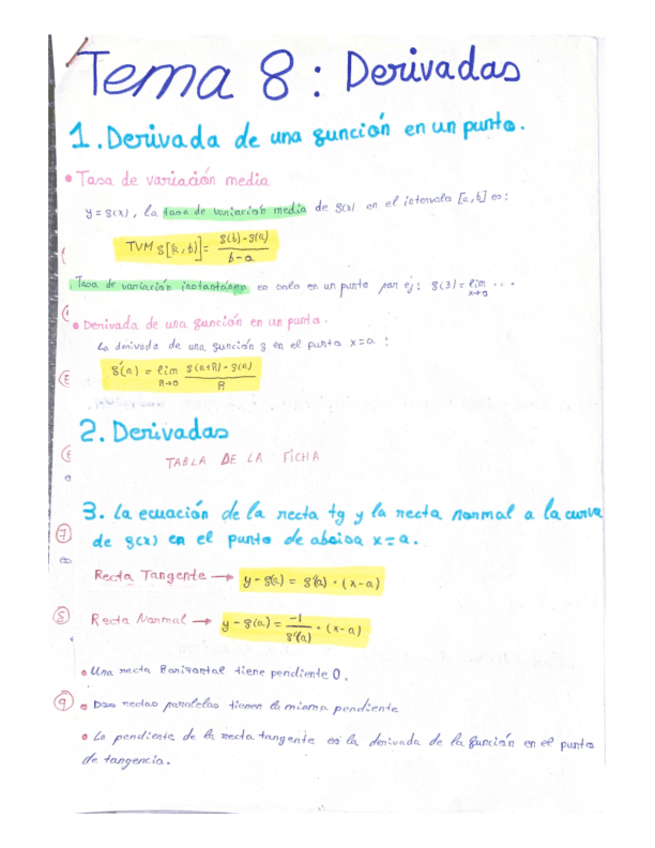 Tema 8: Derivadas
1. Derivada de una función en un punto.
• Tasa de variación media
y = f(x), la tasa de variación media de f(x) en el intervalo [a,b] es:
TVM f[a,b] = f(b)-f(a) / b-a
. Tasa de variación instantánea es onla en un punto por ej: f(3) = lim h→0 ...
• Derivada de una función en un punto.
La derivada de una función f en el punto x=a:
f'(a) = lim h→0 f(a+h) - f(a) / h
2. Derivadas
TABLA DE LA FICHA
3. La ecuación de la recta tg y la recta normal a la curva
de f(x) en el punto de abcisa x=a.
7
Recta Tangente → y - f(a) = f'(a) · (x-a)
8 Recta Normal → y - f(a) = -1/f'(a) · (x-a)
• Una recta horizontal tiene pendiente 0.
9 • Dos rectas paralelas tienen la misma pendiente
• La pendiente de la recta tangente es la derivada de la función en el punto
de tangencia.